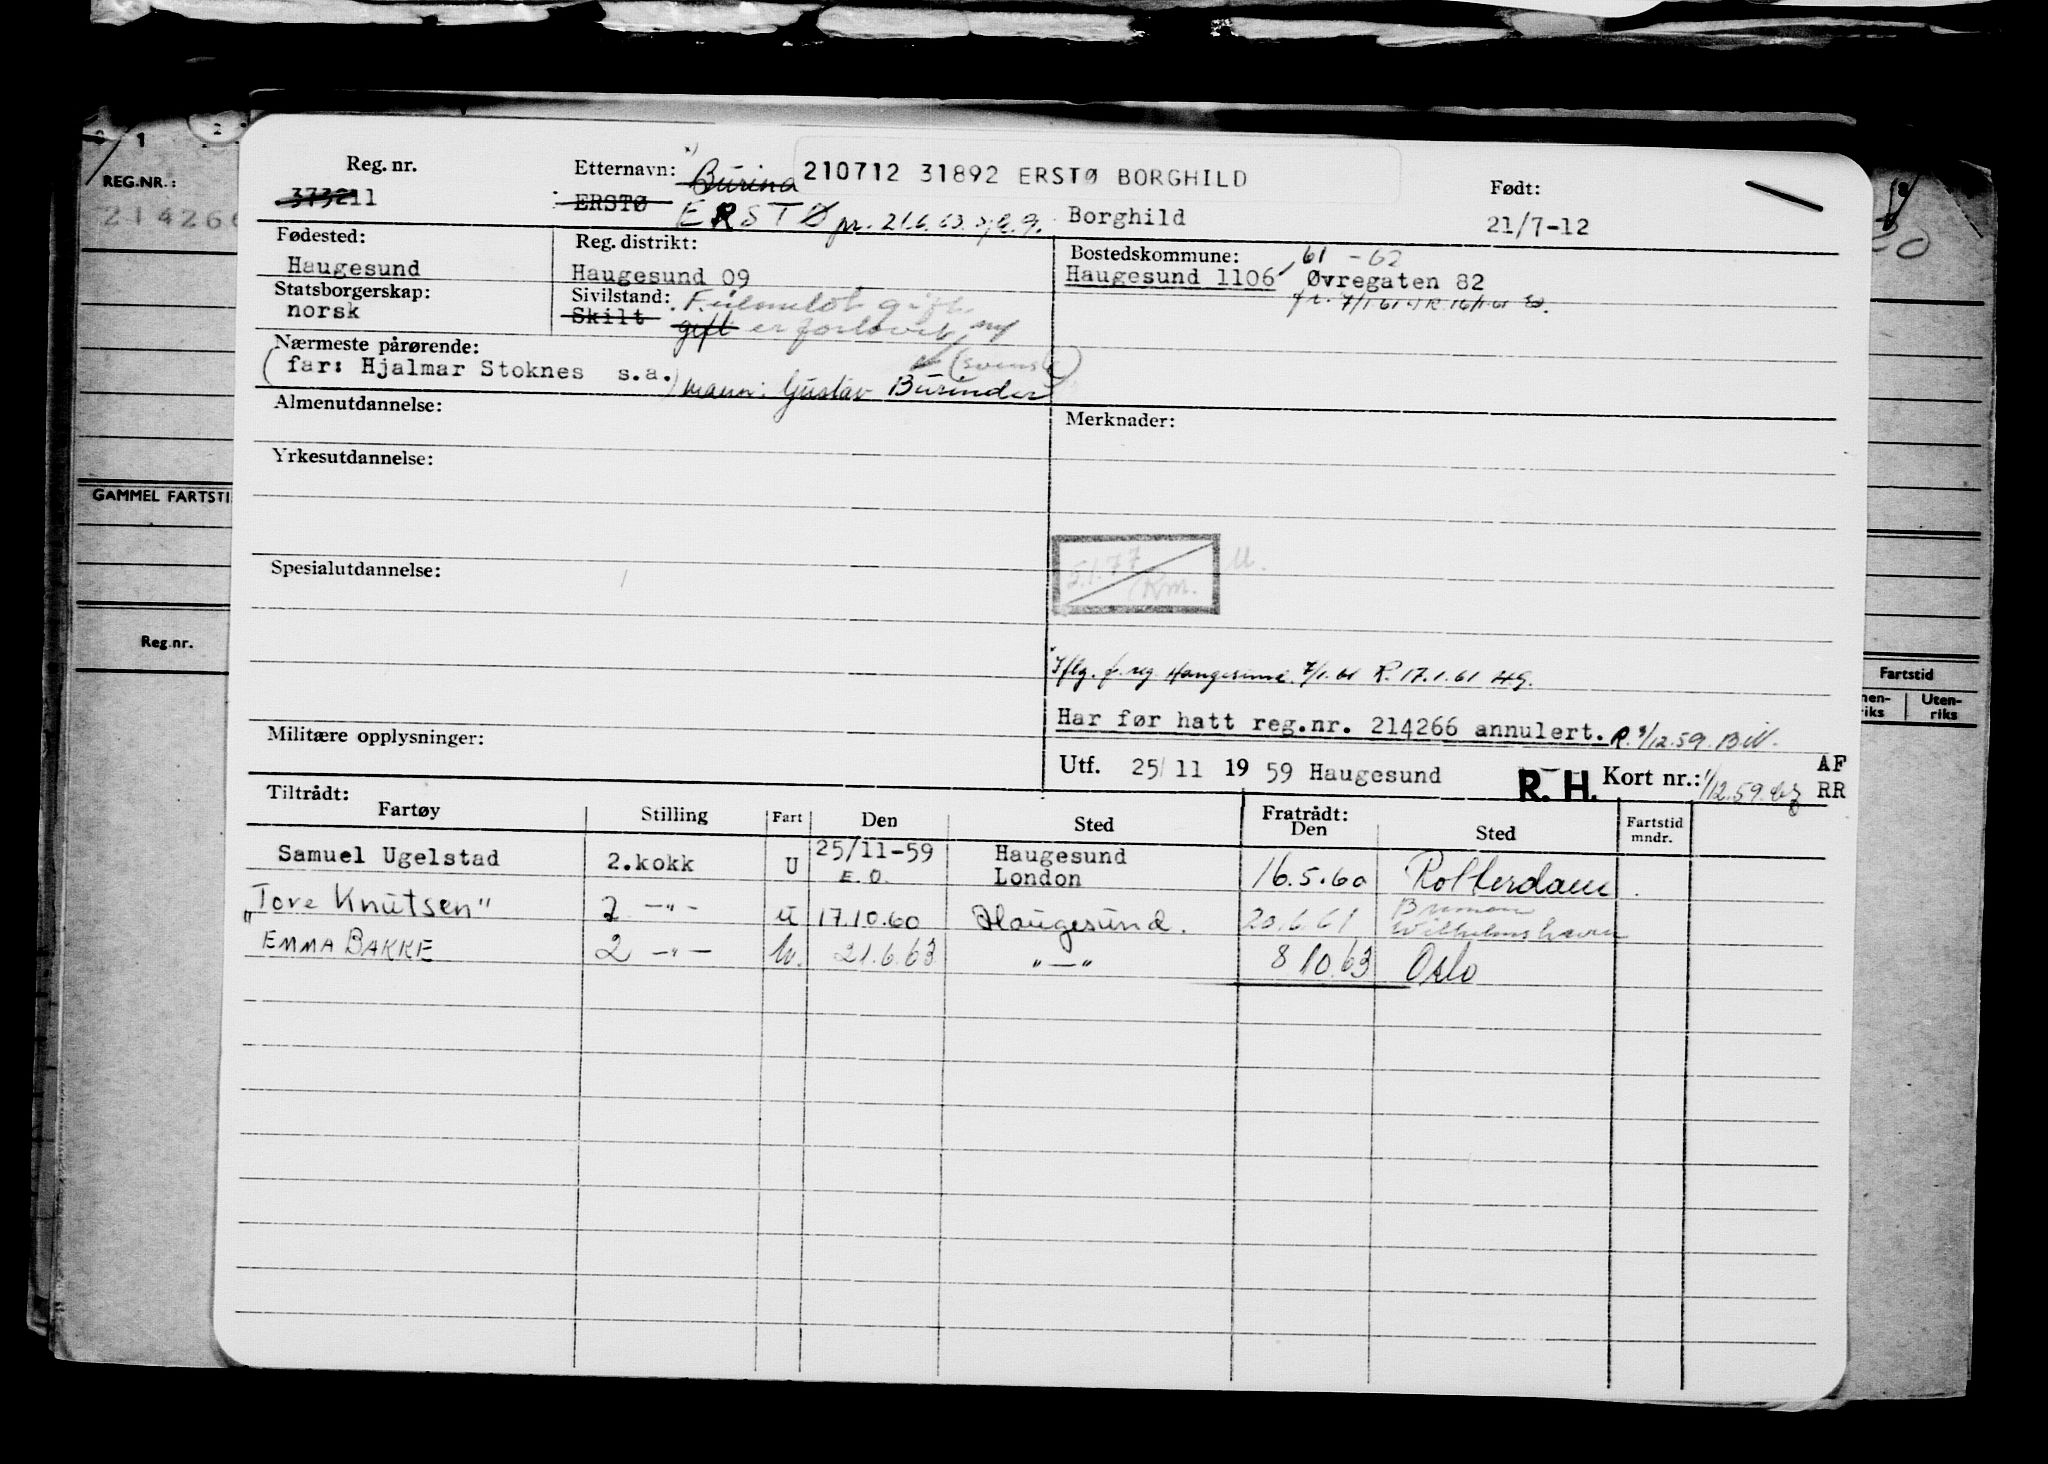 REG.NR.:
214266
GAMMEL FARTSTI
Reg.nr.
Fartstid
Uten-
riks
Reg. nr.
Etternavn: x) Burina 210712 31892 ERSTØ BORGHILD
Født:
37321l
ERSTØ ERSTØ pr. 21.6.63. Borghild
21/7-12
Fødested:
Haugesund
Reg. distrikt:
Haugesund 09
Bostedskommune: 61 - 62
Haugesund 1106 Øvregaten 82
fr. 7/1 61
Statsborgerskap:
norsk
Sivilstand: Feilmeldt gift
Skilt gift er forlovet
Nærmeste pårørende:
(far: Hjalmar Stoknes s.a.) mann: Gustav Burinder
(svensk)
Almenutdannelse:
Merknader:
Yrkesutdannelse:
Spesialutdannelse:
5.1.77
Km.
U.
Iflg. f. reg Haugesund. 7/1.61 R. 17.1.61 HG.
Har før hatt reg.nr. 214266 annulert. R. 1/12.59. B.N.
Militære opplysninger:
Utf. 25/11 1959 Haugesund R. H. Kort nr.: 1/12.59. AF
RR
Tiltrådt:
Fartøy Stilling Fart Den Sted Fratrådt:
Den Sted Fartstid
mndr.
Samuel Ugelstad 2.kokk U 25/11-59 Haugesund
E.O. London 16.5.60 Rotterdam
"Tore Knutsen" 2 -"- U 17.10.60 Haugesund. 20.6.61 Bremen
Wilhelmshaven
EMMA BAKKE 2 -"- U. 21.6.63 "-" 8 10.63 Oslo